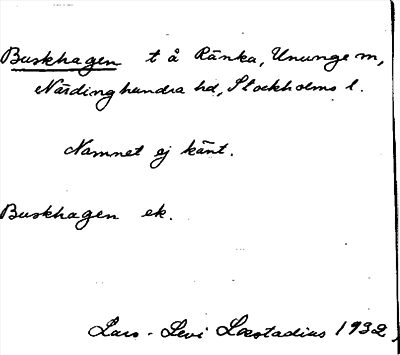 Buskhagen t å Ränka, Ununge m,
Närdinghundra hd, Stockholms l.
Namnet ej känt.
Buskhagen ek.
Lars-Levi Læstadius 1932,